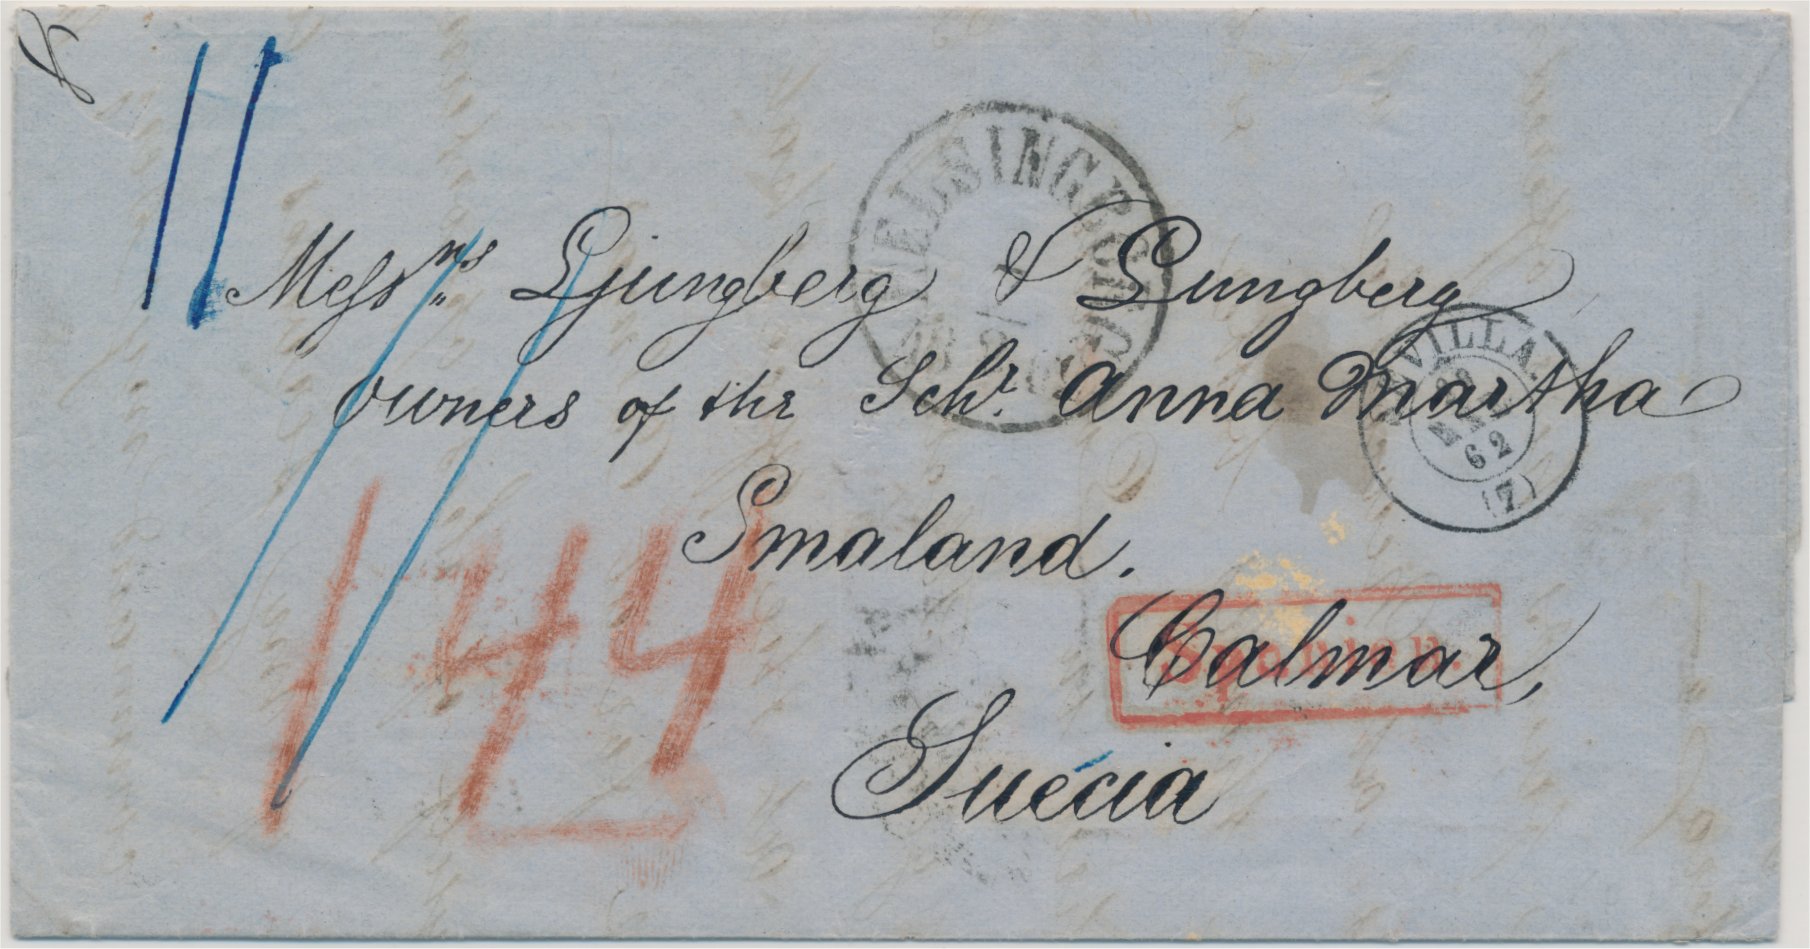 Messrs Ljungberg & Lungberg
owners of the Schr. Anna Martha
Smaland.
Calmar,
Suécia
HELSINGBORG
1
SEVILLA
62
(7)
144